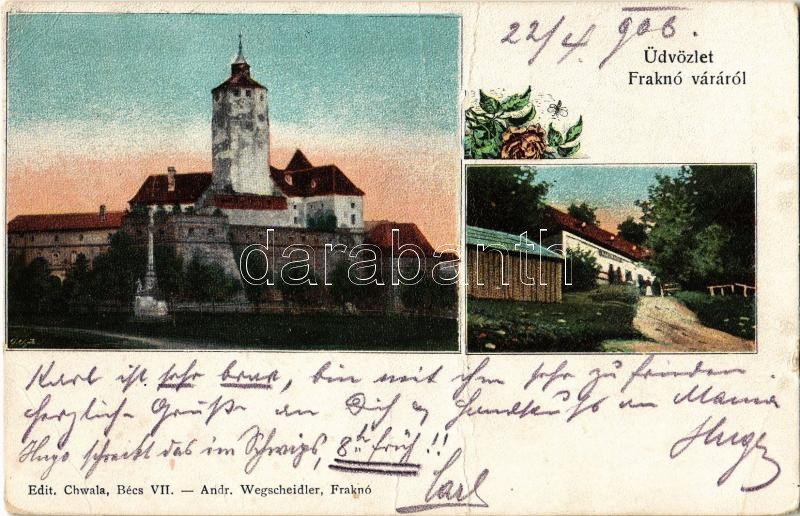 22/4 906.
Üdvözlet
Fraknó váráról
darabanth.com
Karl ist sehr brav, bin mit ihm sehr zu frieden.
herzlich- Grüße an Dich & Handkuß an Mama
Hugo
Hugo schreibt das im Schwips, 8h früh!!
Carl
Edit. Chwala, Bécs VII. — Andr. Wegscheidler, Fraknó